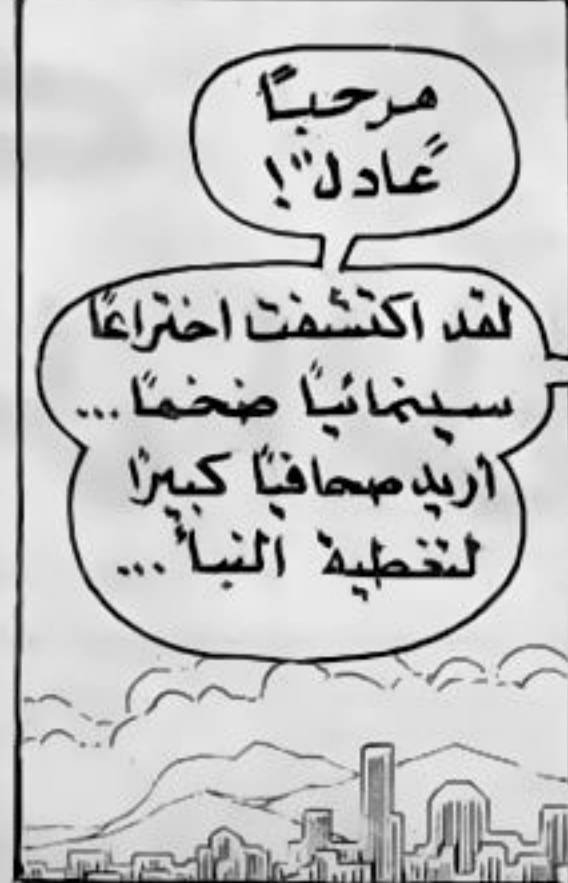 مرحباً
"عادل"!
لقد اكتشفت اختراعًا
سينمائياً ضخمًا...
اريد صحافيًا كبيرًا
لتغطية النبأ...